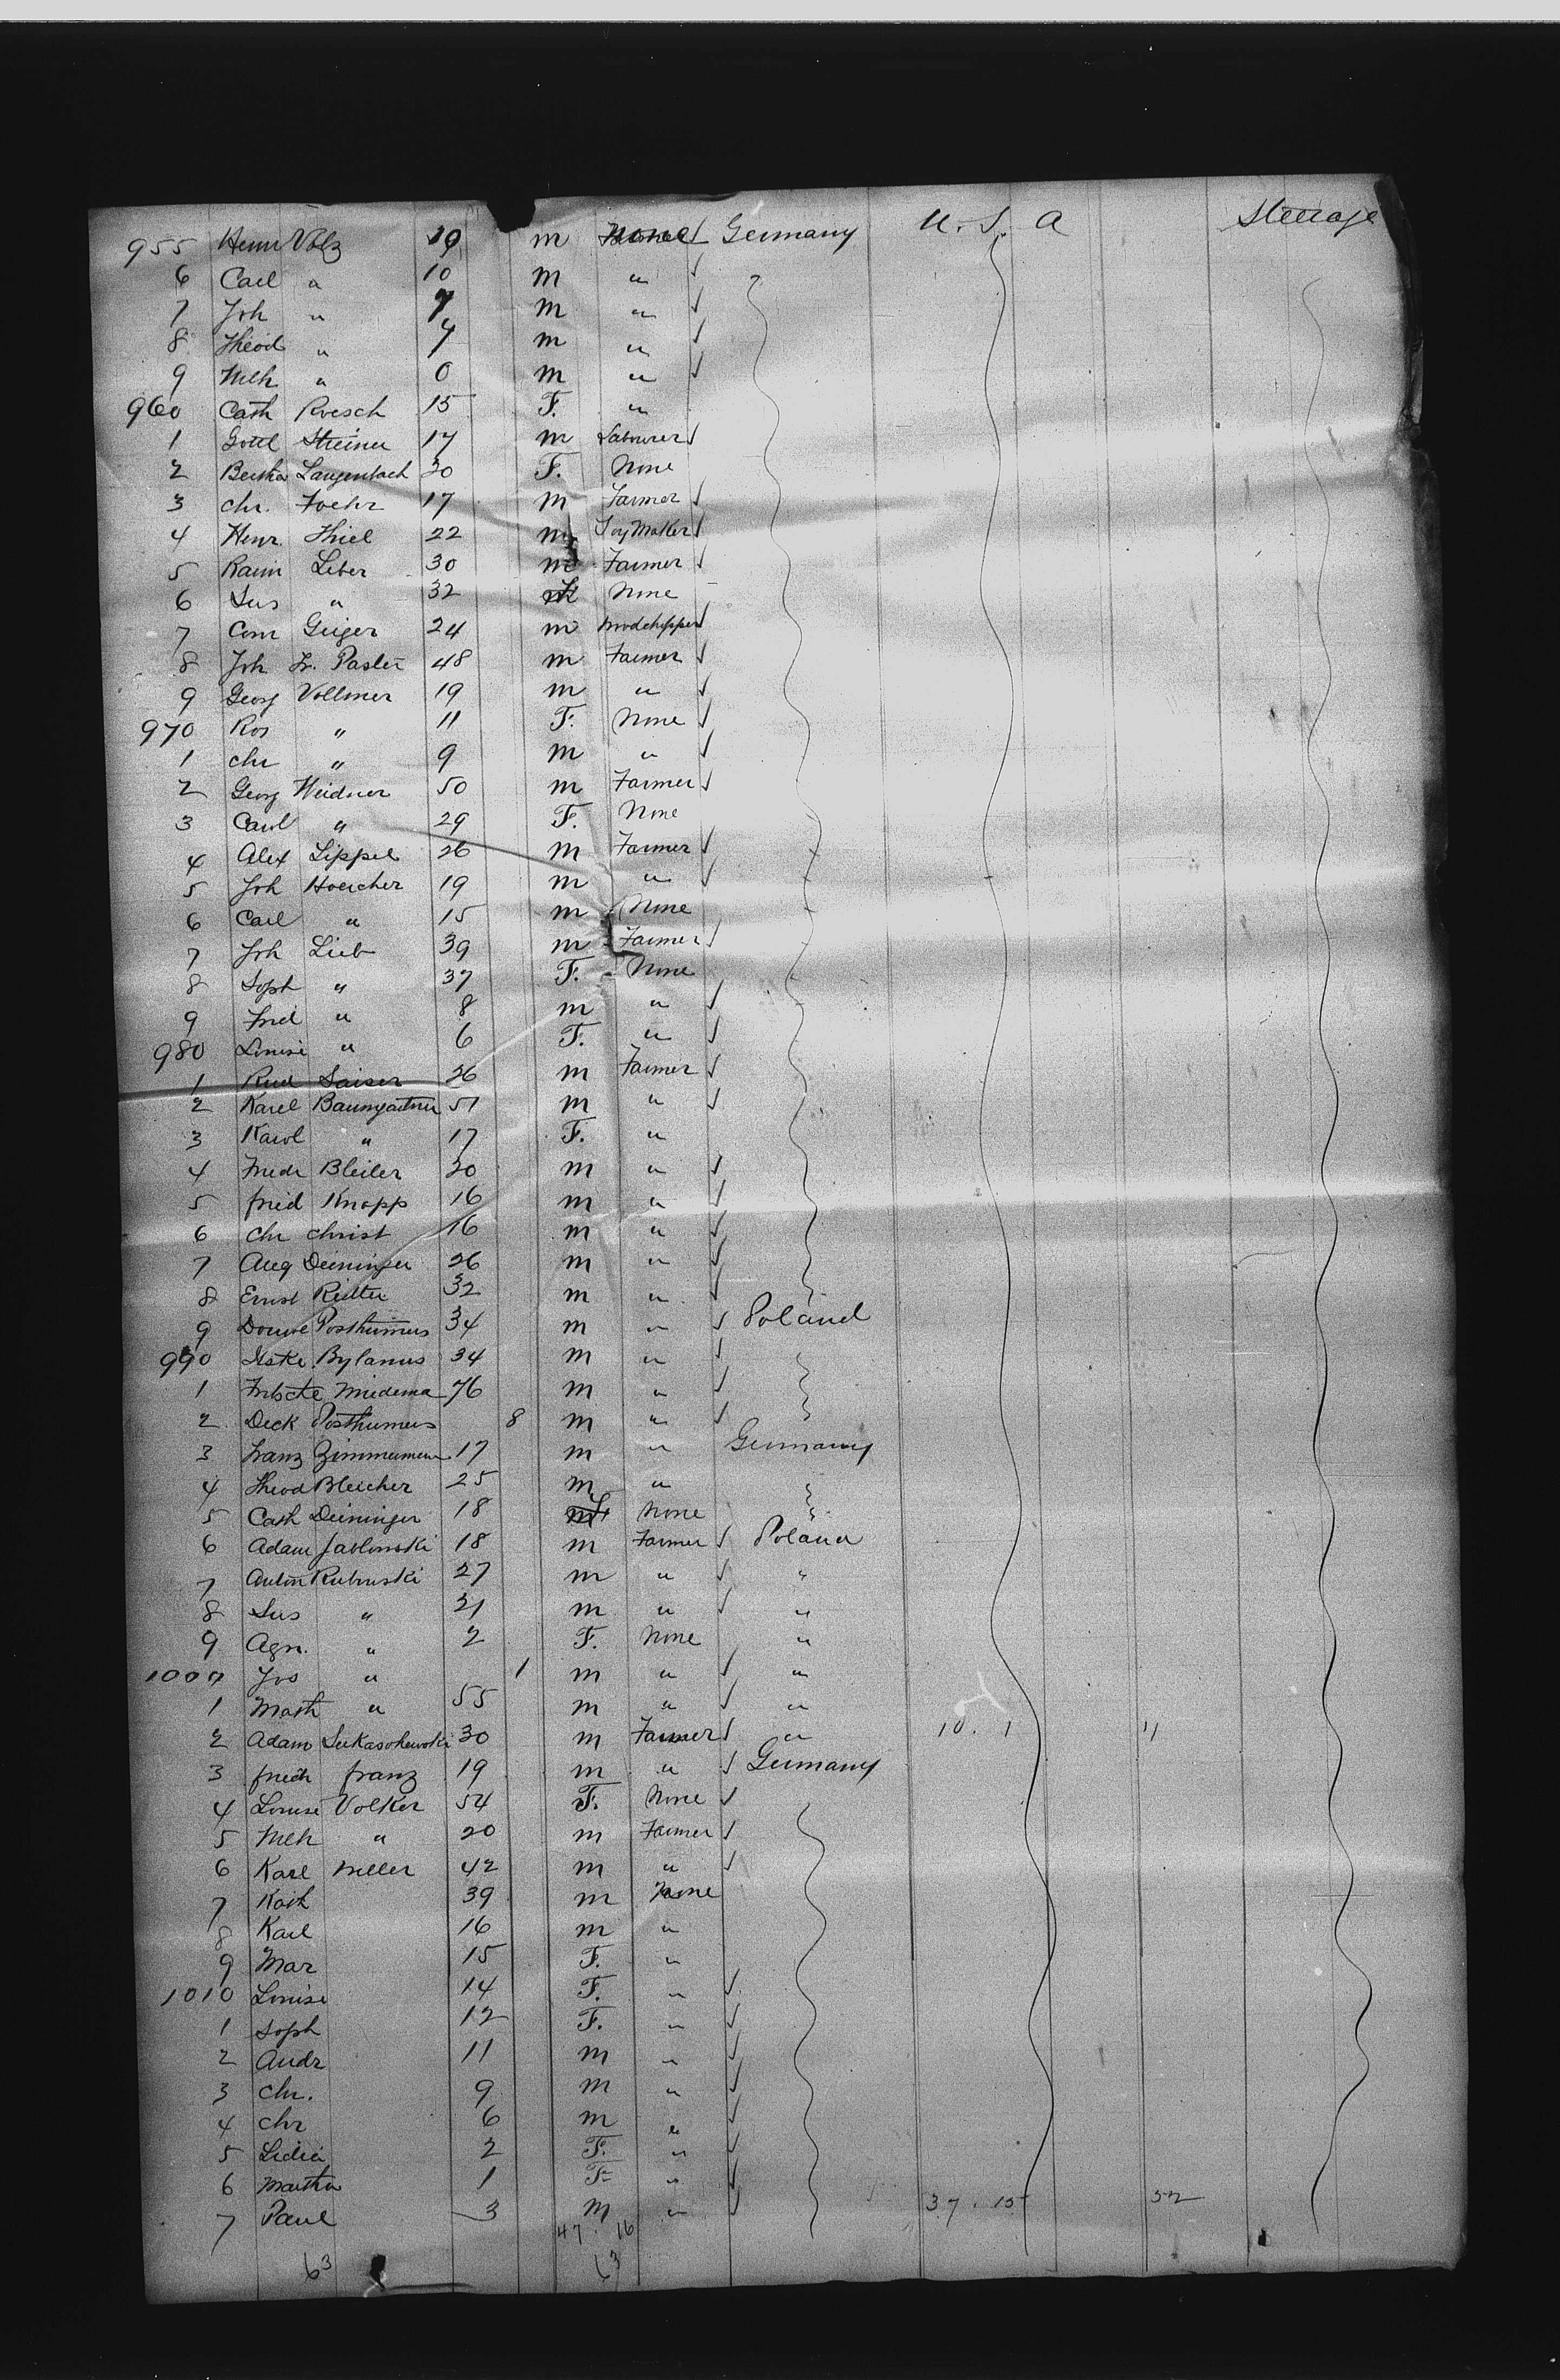 955 Henr Volz 19 m None Germany U. S. A Steerage
6 Carl " 10 m "
7 Joh " 7 m "
8 Theod " 4 m "
9 Wlh " 0 m "
960 Cath Roesch 15 F. "
1 Gottl Steiner 17 m Labourer
2 Bertha Langenbach 30 F. None
3 Chr. Foehr 17 m Farmer
4 Henr. Thiel 22 m Toy Maker
5 Raim Leber 30 m Farmer
6 Sus " 32 F None
7 Conr Geiger 24 m Woodchopper
8 Joh Fr. 48 m Farmer
9 Georg Vollmer 19 m "
970 Ros " 11 F. None
1 Chr " 9 m "
2 Georg Weidner 50 m Farmer
3 Carol " 29 F. None
4 Alex Lippel 26 m Farmer
5 Joh Hoercher 19 m "
6 Carl " 15 m None
7 Joh Lieb 39 m Farmer
8 Soph " 37 F. None
9 Fried " 8 m "
980 Louise " 6 F. "
1 Rud Saiser 26 m Farmer
2 Karel Baumgartner 51 m "
3 Karol " 17 F. "
4 Friedr Bleiler 30 m "
5 fried Knapp 16 m "
6 Chr Christ 16 m "
7 Aug Deininger 26 m "
8 Ernst Reitter 32 m "
9 Douwe Posthumus 34 m " Poland
990 Bylanus 34 m "
1 Miedema 76 m "
2 Deck Posthumus 8 m "
3 Franz Zimmerman 17 m " Germany
4 Theod Bleicher 25 m "
5 Cath Deininger 18 F None
6 Adam Jablonski 18 m Farmer Poland
7 Anton Rubuski 27 m " "
8 Sus " 21 m " "
9 Agn. " 2 F. None "
1000 Jos " 1 m " "
1 Math " 55 m " "
2 Adam 30 m Farmer " 10. 1 11
3 friedr franz 19 m " Germany
4 Louise Volker 54 F. None
5 Wlh " 20 m Farmer
6 Karl Miller 42 m "
7 Kath 39 m None
8 Karl 16 m "
9 Mar 15 F. "
1010 Louise 14 F. "
1 Soph 12 F. "
2 Andr 11 m "
3 Chr. 9 m "
4 Chr 6 m "
5 Lidia 2 F. "
6 Martha 1 F "
7 Paul 3 m " 37. 15 52
47. 16
63 63